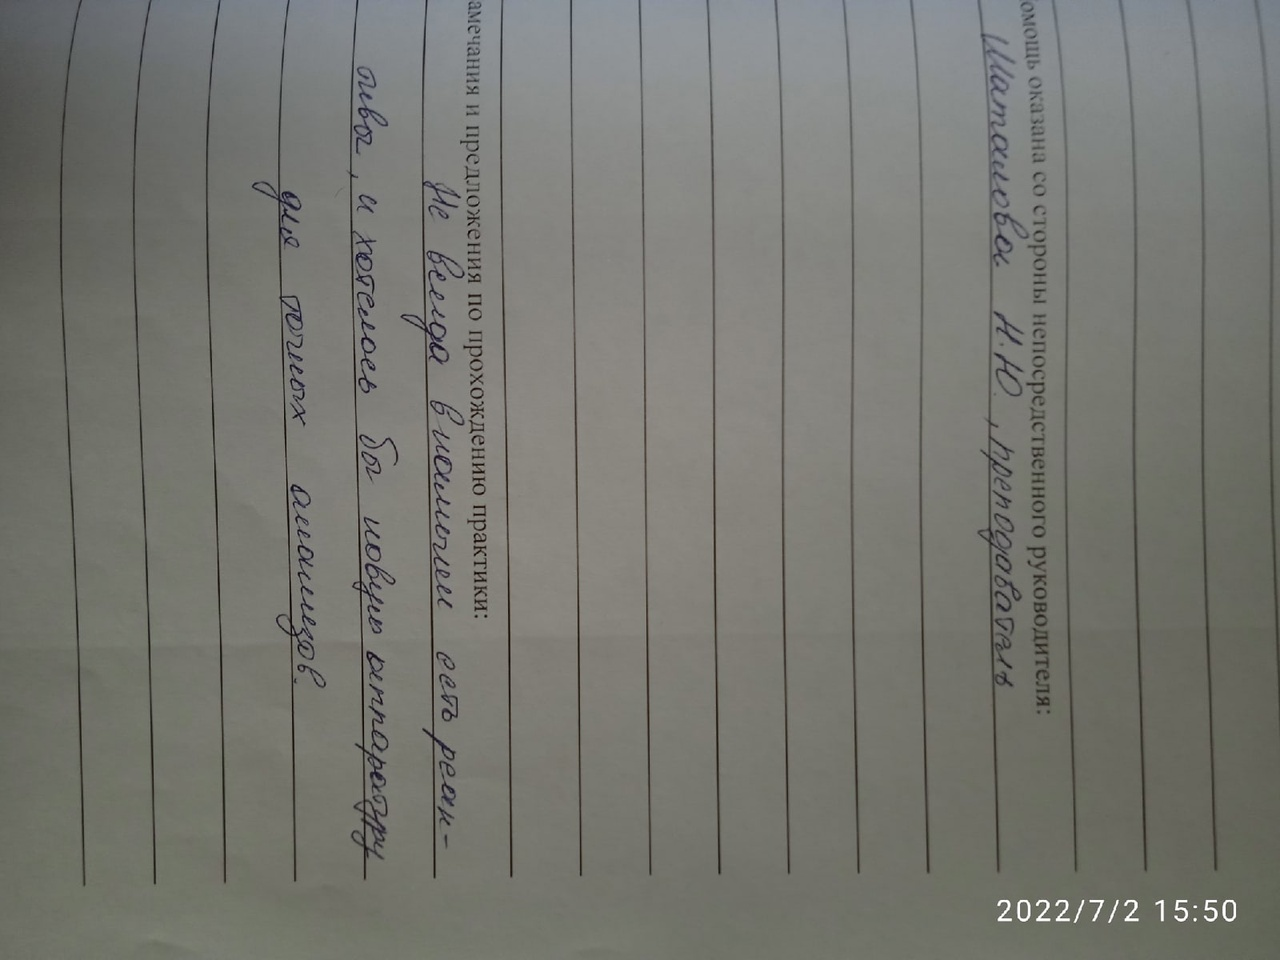 омощь оказана со стороны непосредственного руководителя:
Шаталова Н.Ю., преподаватель
амечания и предложения по прохождению практики:
Не всегда в наличии есть реак-
тивы, и хотелось бы новую аппаратуру
для точных анализов.
2022/7/2 15:50